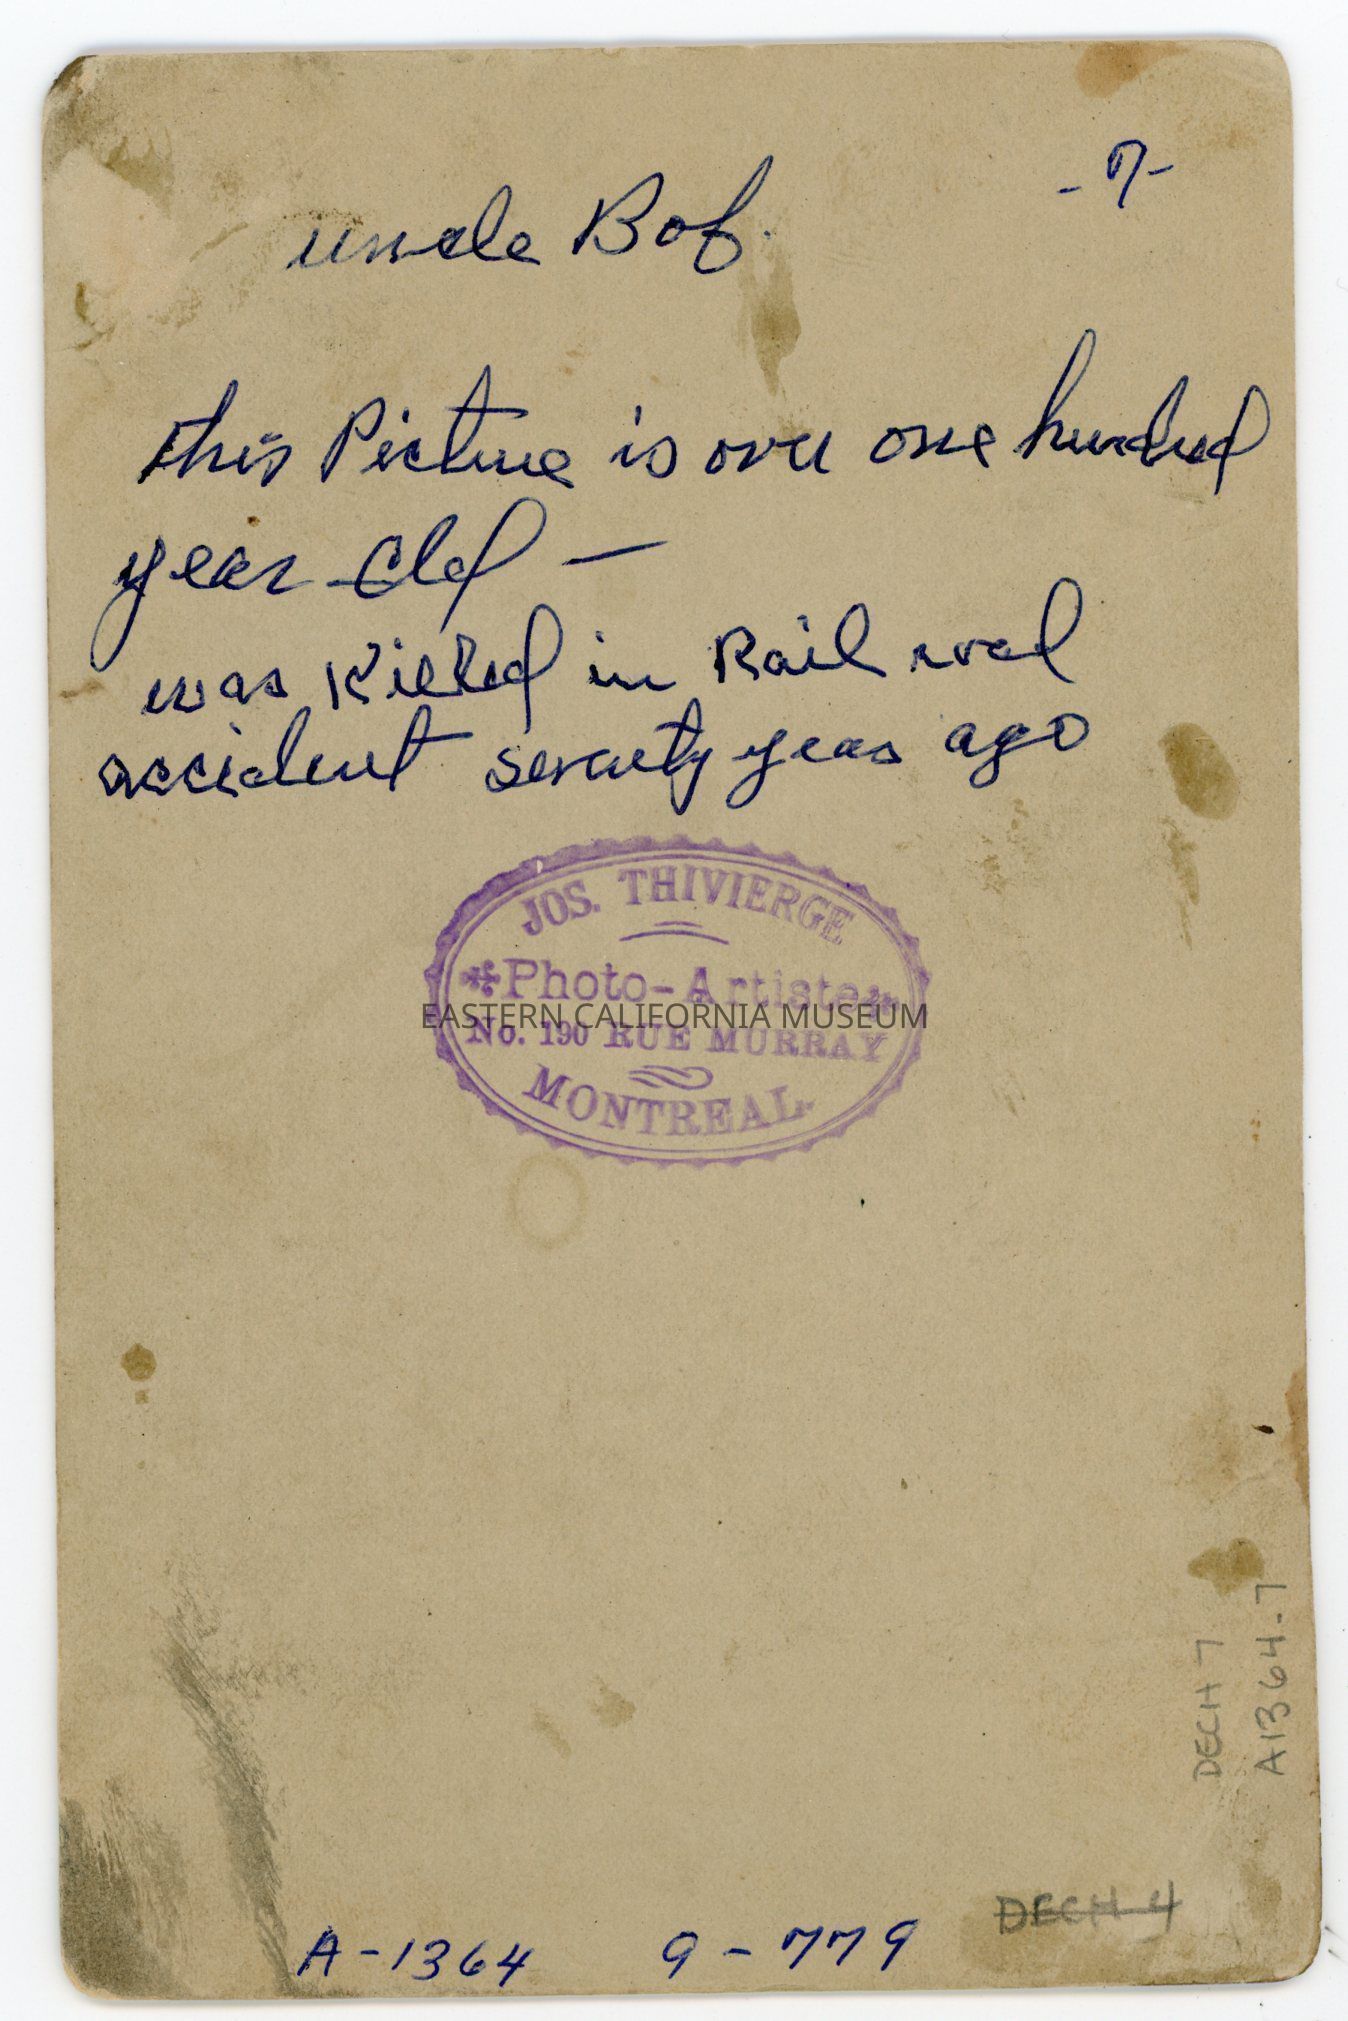 -7-
uncle Bob.
this Picture is over one hundred
year old —
was Killed in Rail road
accident seventy years ago
JOS. THIVIERGE
Photo-Artiste
EASTERN CALIFORNIA MUSEUM
No. 190 RUE MURRAY
MONTREAL.
DECH 7
A1364-7
DECH 4
A-1364 9-779